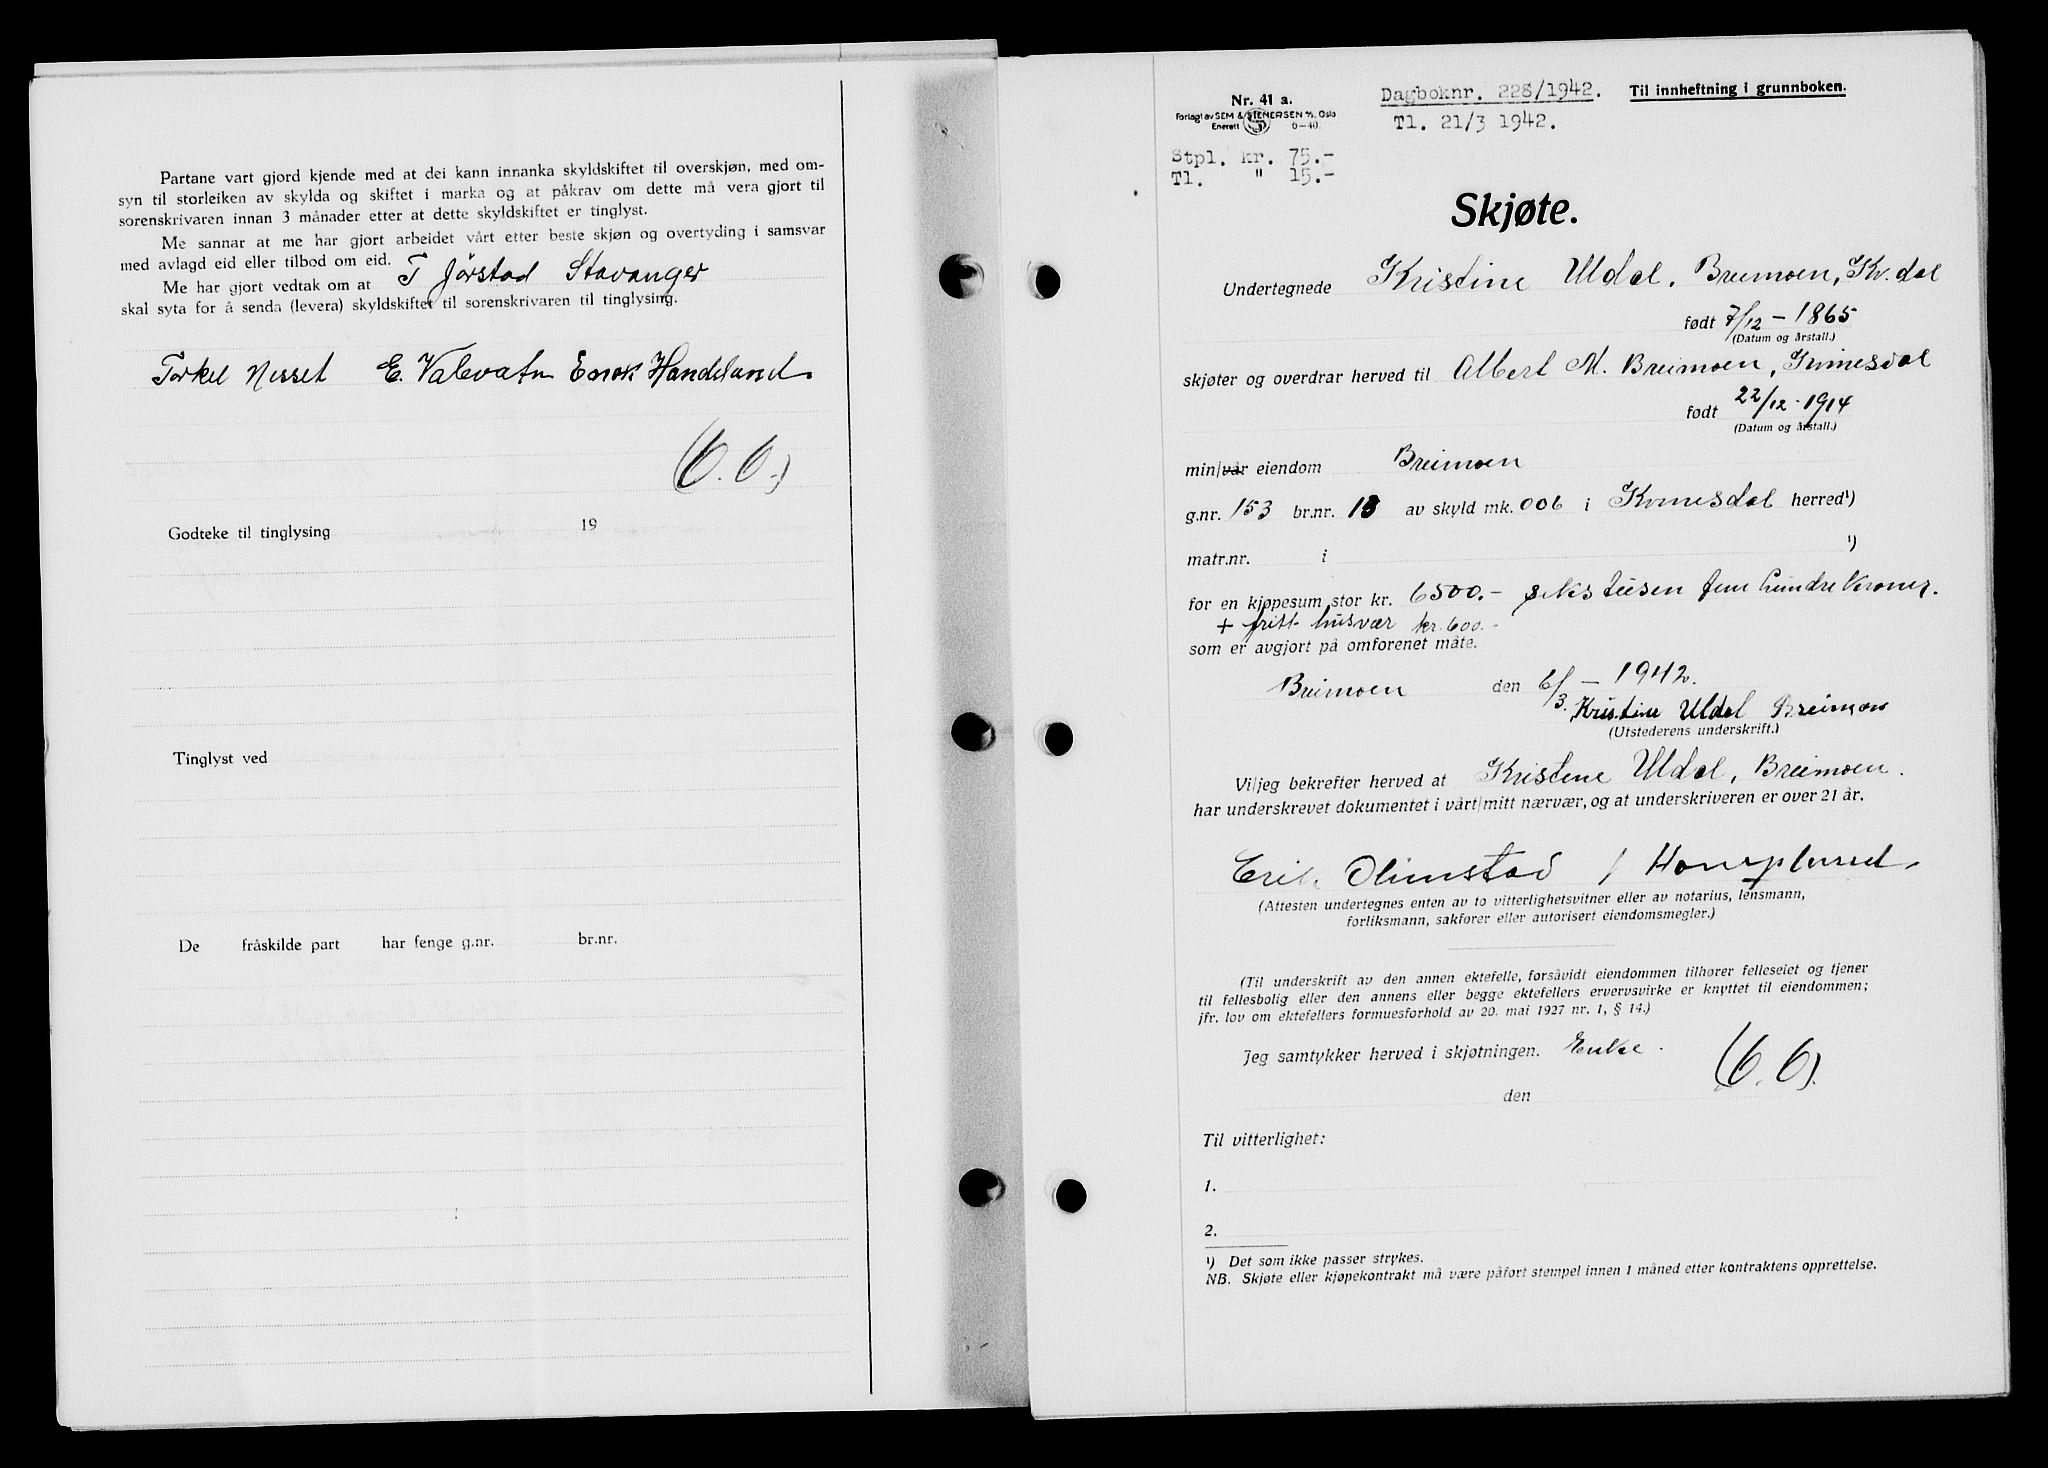 Partane vart gjord kjende med at dei kann innanka skyldskiftet til overskjøn, med om-
syn til storleiken av skylda og skiftet i marka og at påkrav om dette må vera gjort til
sorenskrivaren innan 3 månader etter at dette skyldskiftet er tinglyst.
Me sannar at me har gjort arbeidet vårt etter beste skjøn og overtyding i samsvar
med avlagd eid eller tilbod om eid.
Me har gjort vedtak om at T Jørstad Stavanger
skal syta for å senda (levera) skyldskiftet til sorenskrivaren til tinglysing.
Torkel Nesset E. Valevatn Enok Handeland
Godteke til tinglysing 19
Tinglyst ved
De fråskilde part har fenge g.nr. br.nr.
Nr. 41 a.
Forlagt av SEM & STENERSEN A/S, Oslo
Enerett S 6-40.
Dagboknr. 228/1942. Til innheftning i grunnboken.
Tl. 21/3 1942.
Stpl. kr. 75.-
Tl. " 15.-
Skjøte.
Undertegnede Kristine Uldal, Breimoen, Kv.dal
født 7/12 - 1865
(Datum og årstall.)
skjøter og overdrar herved til Albert M. Breimoen, Kvinesdal
født 22/12 - 1914
(Datum og årstall.)
min/vår eiendom Breimoen
g.nr. 153 br.nr. 18 av skyld mk. 006 i Kvinesdal herred¹)
matr.nr. i ¹)
for en kjøpesum stor kr. 6500.- seks tusen fem hundre kroner.
+ fritt husvær kr. 600.-
som er avgjort på omforenet måte.
Breimoen den 6/3 - 1942.
Kristine Uldal Breimoen
(Utstederens underskrift.)
Vi/jeg bekrefter herved at Kristine Uldal, Breimoen.
har underskrevet dokumentet i vårt/mitt nærvær, og at underskriveren er over 21 år.
Erik Olimstad /
(Attesten undertegnes enten av to vitterlighetsvitner eller av notarius, lensmann,
forliksmann, sakfører eller autorisert eiendomsmegler.)
(Til underskrift av den annen ektefelle, forsåvidt eiendommen tilhører felleseiet og tjener
til fellesbolig eller den annens eller begge ektefellers ervervsvirke er knyttet til eiendommen;
jfr. lov om ektefellers formuesforhold av 20. mai 1927 nr. 1, § 14.)
Jeg samtykker herved i skjøtningen. Enke.
den
Til vitterlighet:
1.
2.
¹) Det som ikke passer strykes.
NB. Skjøte eller kjøpekontrakt må være påført stempel innen 1 måned etter kontraktens opprettelse.